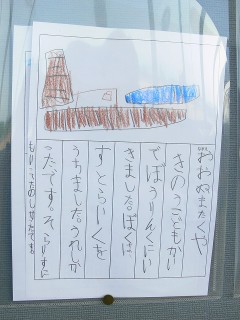 おおぬまたくや
きのうこどもかい
でぼうりんくにい
きました。ぼくは
すとらいくを
うちました。うれしか
ったです。
もいってたのしかったです。